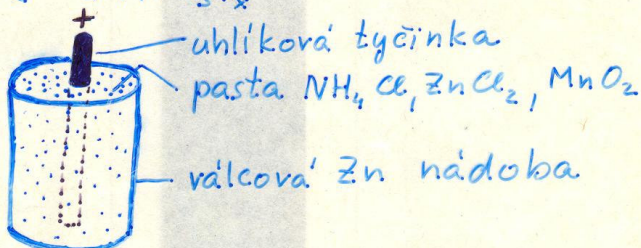 +
uhlíková tyčinka
pasta NH₄Cl, ZnCl₂, MnO₂
válcová Zn nádoba